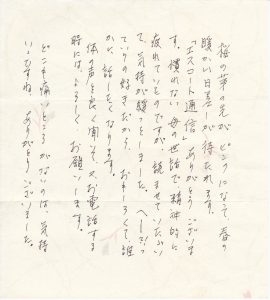 桜の芽の先がピンクになって、春の
暖かい日差しが待たれます。
「エスコート通信」ありがとうございま
す。慣れない母の世話で精神的に
疲れていたのですが、読ませていただい
て、気持が緩みました。へーっ
ていうの好きだから、おもしろくて、誰
かに話したくなります。
体の声を良く聞いて、又お電話する
時には、よろしくお願いします。
どこも痛いところがないのは、気持
いいですね。ありがとうございました。